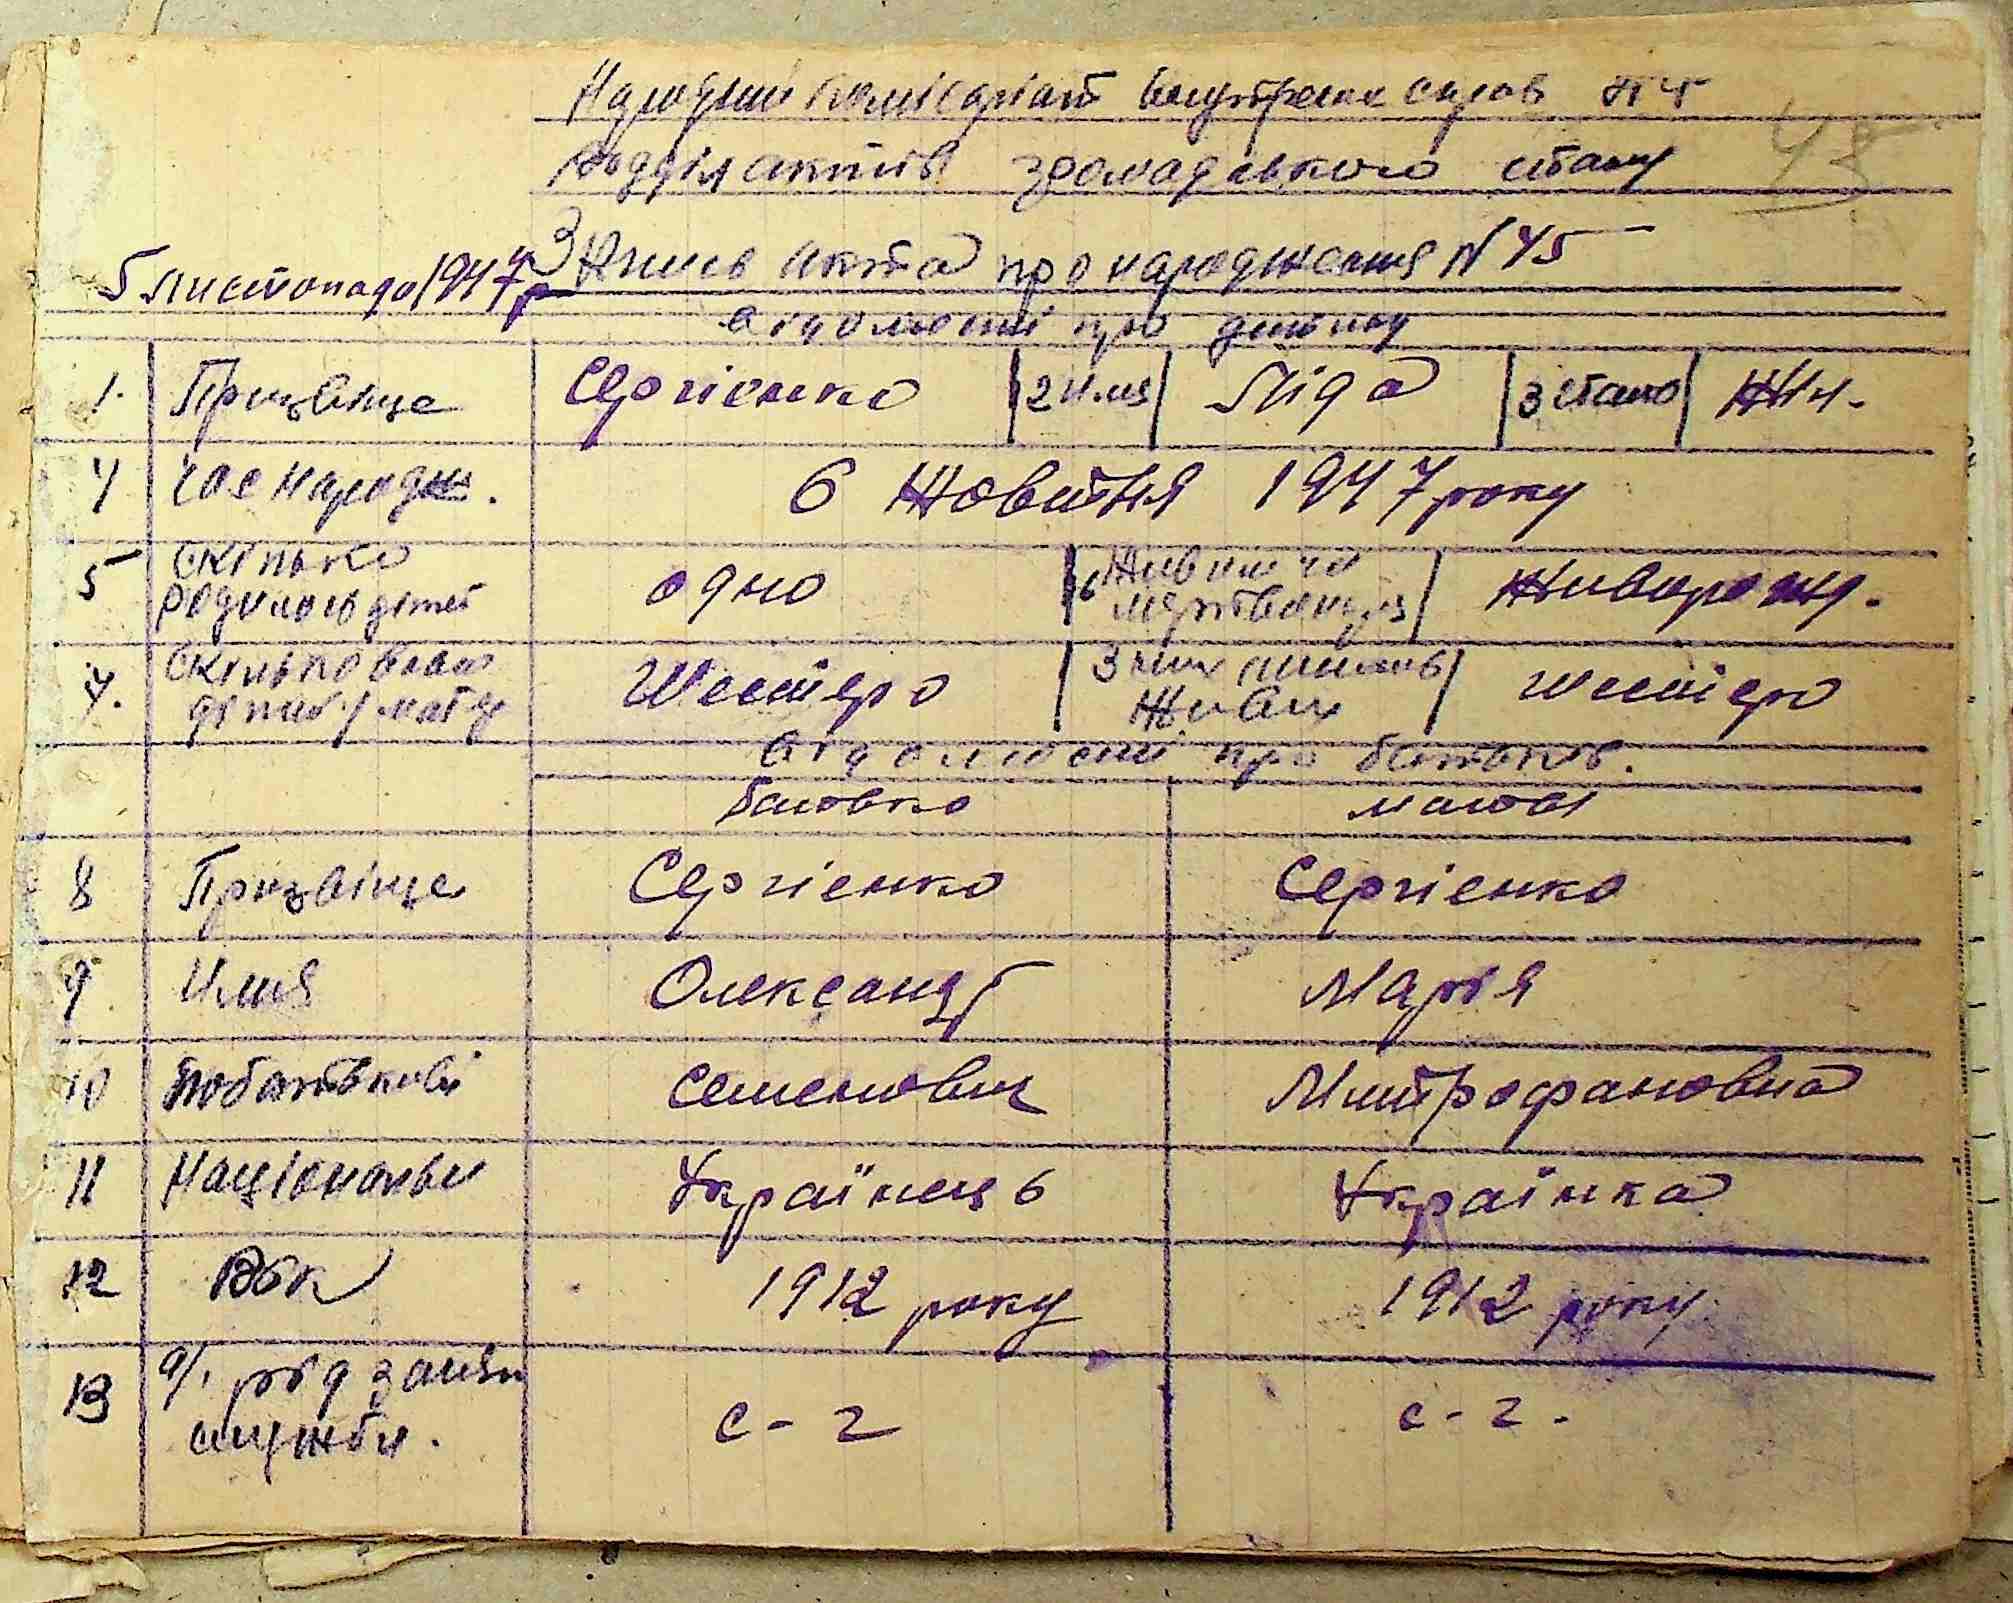 Народний комісаріат внутрешнх справ
Відділ актів громадського стану
45
5 листопада 1947р Запись акта про народження N 45
відомості про дитину
1. Призвіще Сергіенко 2 имя Ліда 3 стать Жін.
4 час народж. 6 Жовтня 1947 року
5 скілько родилось дітей одно 6 Живим чи мертвонар Живорожд.
7. скілько всіх дітей у матер Шестеро З них лишилось Живих шестеро
відомості про батьків.
батько мати
8 Призвіще Сергіенко Сергіенко
9 Имия Олександр Марія
10 Побатькові семенович Митрофановна
11 Національн Українець Українка
12 Вік 1912 року 1912 року
13 а/. рід занять служби. с-г с-г.